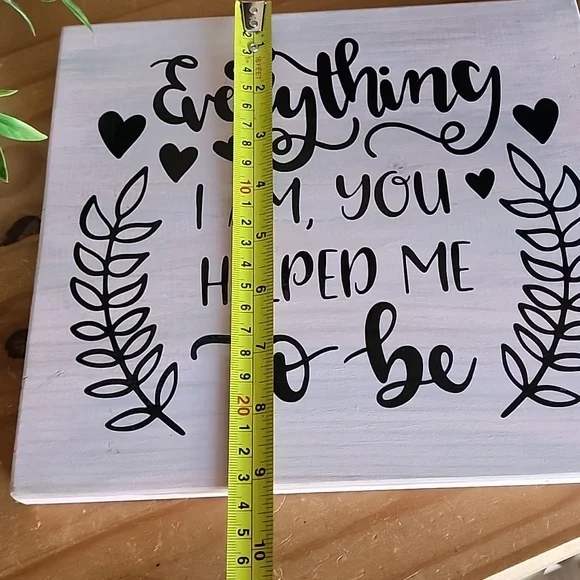 Everything
I AM, YOU
HELPED ME
to be
2 3 4 5 6 7 8 9 10 1 2 3 4 5 6 7 8 9 20 1 2 3 4 5 6
1 2 3 4 5 6 7 8 9 10